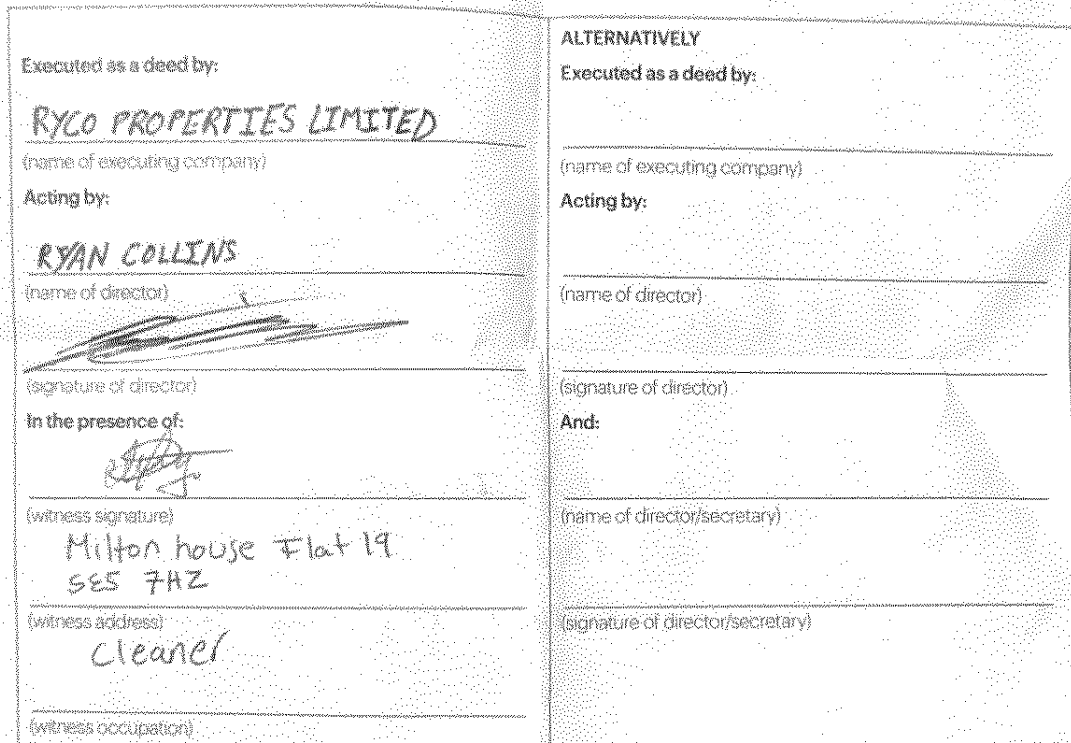 Executed as a deed by:
RYCO PROPERTIES LIMITED
(name of executing company)
Acting by:
RYAN COLLINS
(name of director)
(signature of director)
In the presence of:
(witness signature)
Milton house Flat 19
SE5 7HZ
(witness address)
cleaner
(witness occupation)
ALTERNATIVELY
Executed as a deed by:
(name of executing company)
Acting by:
(name of director)
(signature of director)
And:
(name of director/secretary)
(signature of director/secretary)